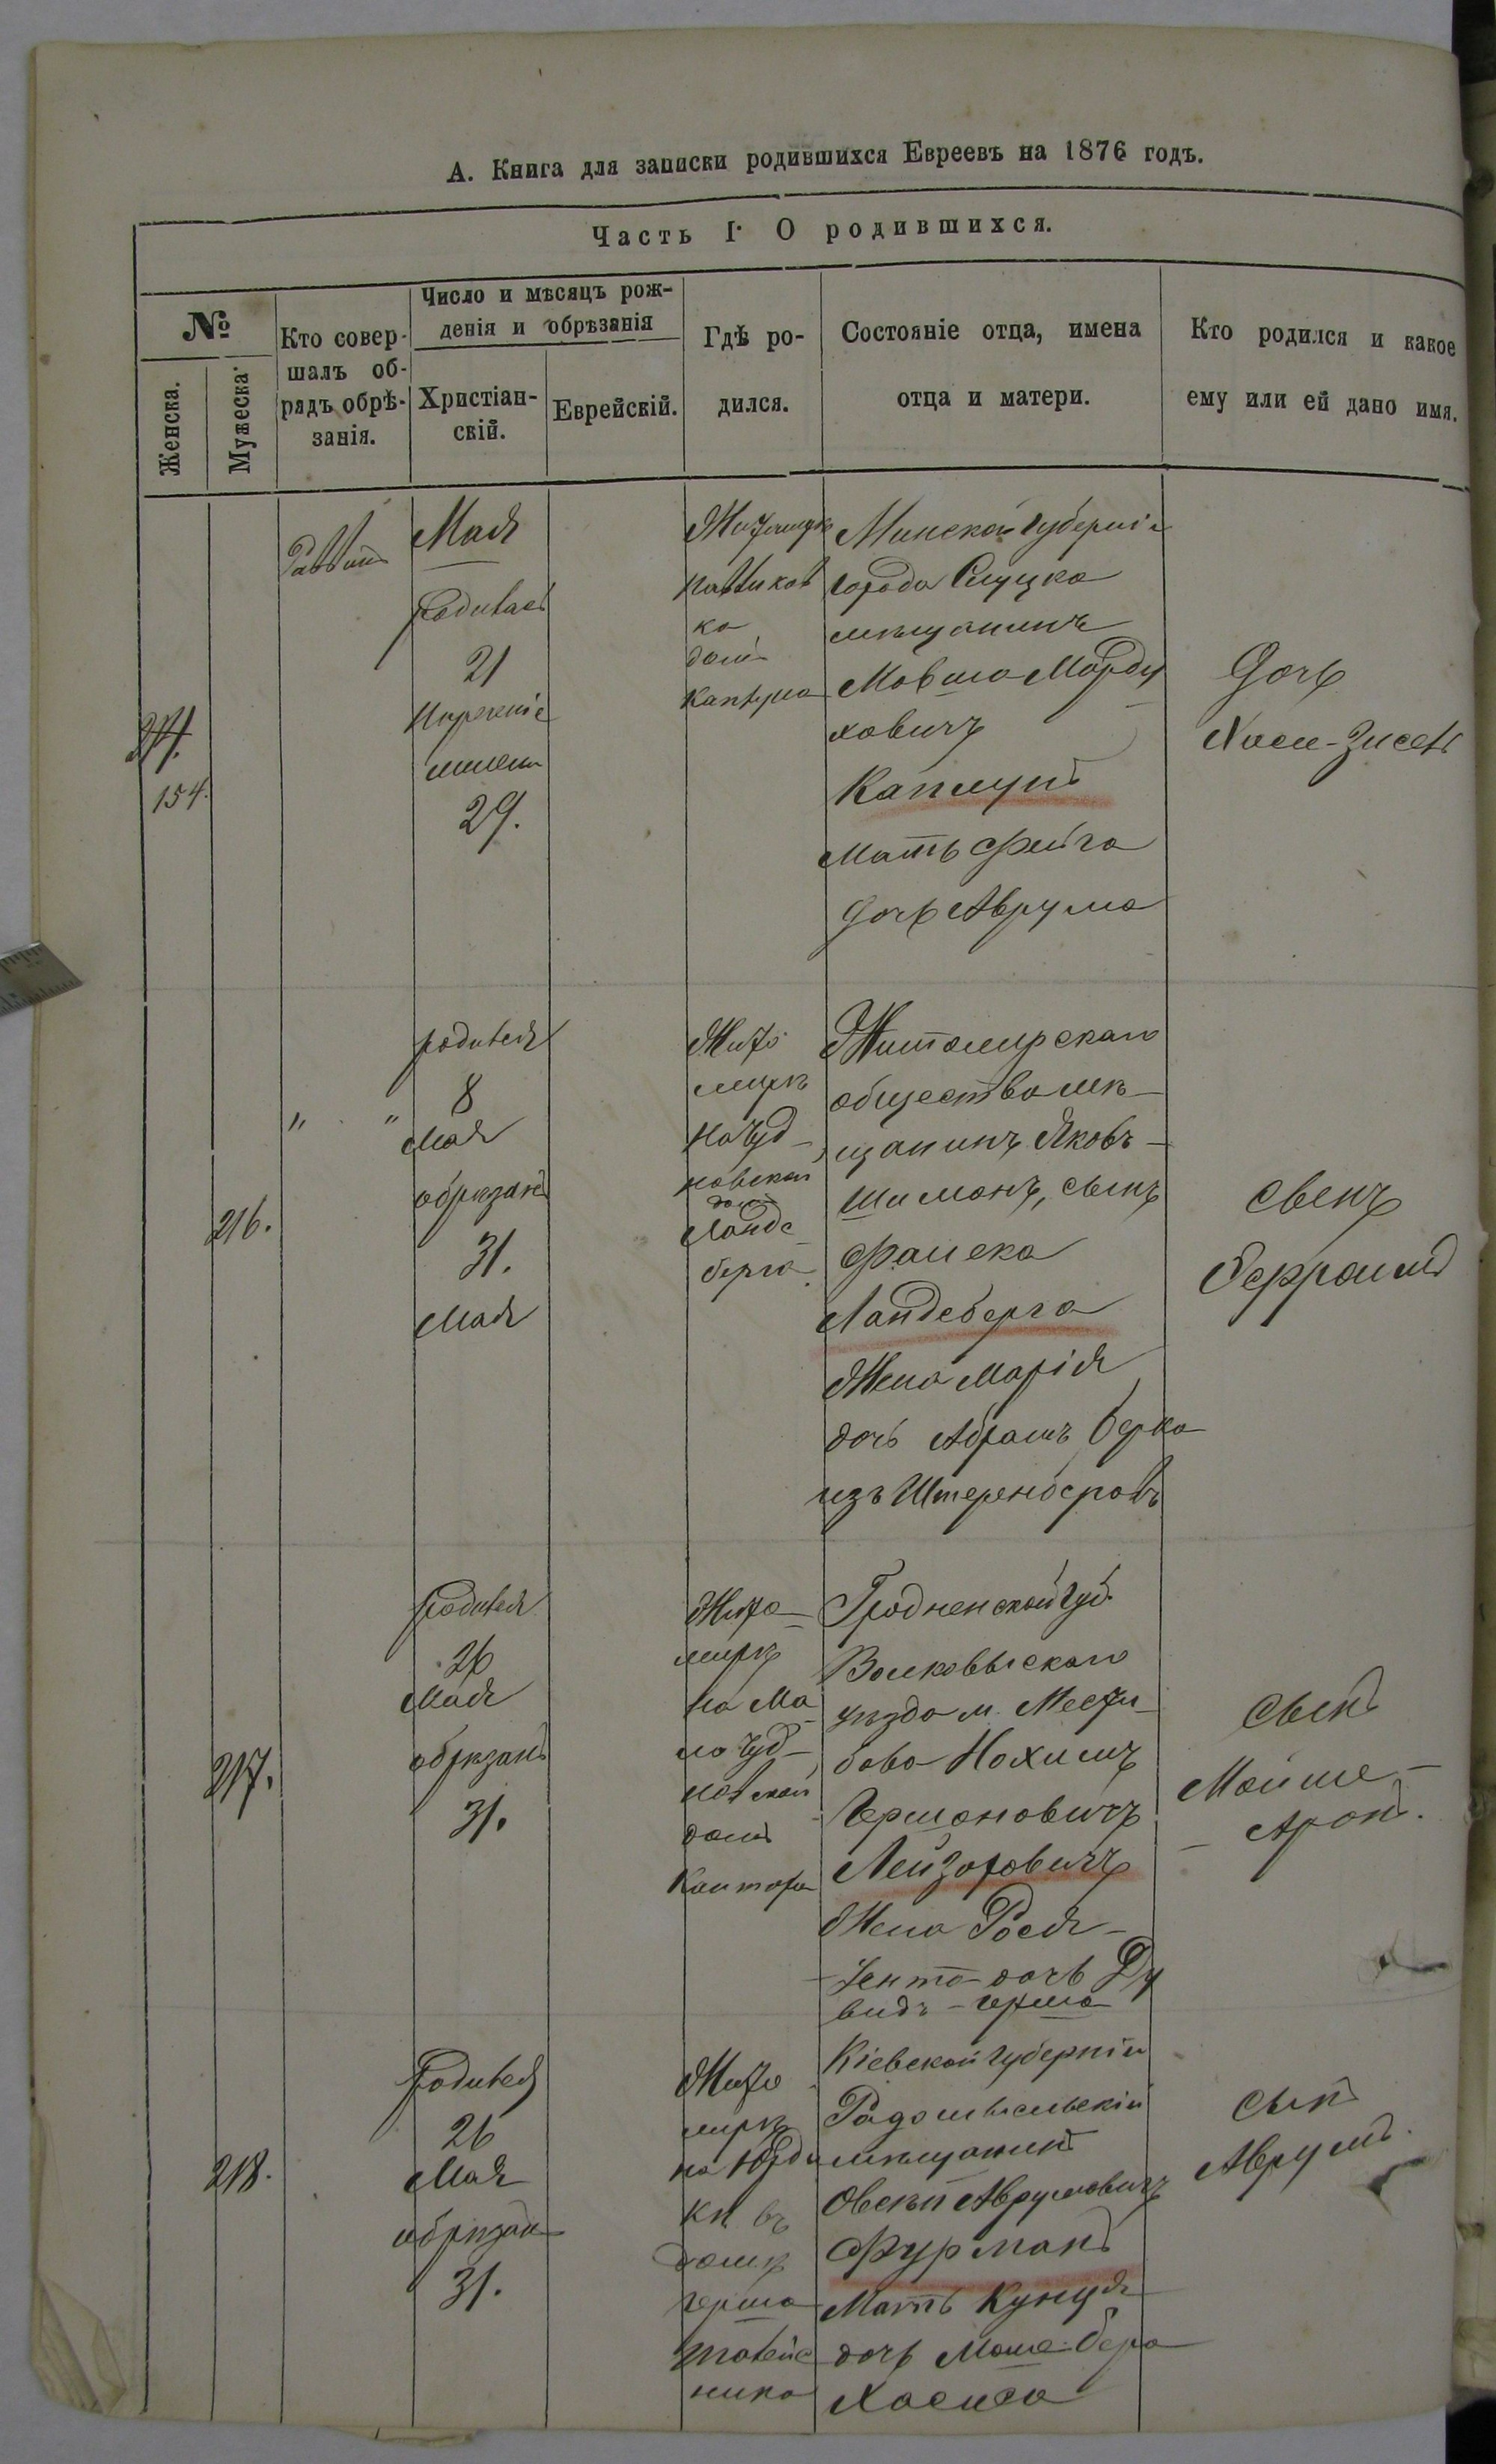 А. Книга для записки родившихся Евреевъ на 1876 годъ.
Часть I. О родившихся.
№
Женска.
Мужеска.
Кто совер-
шалъ об-
рядъ обрѣ-
занія.
Число и мѣсяцъ рож-
денія и обрѣзанія
Христіан-
скій.
Еврейскій.
Гдѣ ро-
дился.
Состояніе отца, имена
отца и матери.
Кто родился и какое
ему или ей дано имя.
154.
Раввинъ
Мая
родилась
21
Нареченіе
имени
29.
ка
домъ
Каплуна
Минской губерніи
города Слуцка
мѣщанинъ
Мовша Морду
ховичъ
Каплунъ
Мать Фейга
дочь Аврума
Дочь
Хася-Зисель
216.
" "
родился
8
Мая
обрѣзанъ
31.
Мая
Жито
мирѣ
на Чуд-
новской
домъ
Ландс
берга
Житомирскаго
общества мѣ-
щанинъ Яковъ-
Шимонъ, сынъ
Файека
Ландсберга
Жена Марія
дочь Абрамъ Берка
изъ Штеренберговъ
сынъ
Ефраимъ
217.
родился
26
Мая
обрѣзанъ
31.
Жито-
мирѣ
на Ма
ло Чуд-
новской
домъ
Кантора
Гродненской губ.
Волковыскаго
уѣзда м. Мсти-
бова Нохимъ
Гершоновичъ
Лейзоровичъ
Жена Рося-
Зента дочь Ду
видъ-Герша
сынъ
Мойше-
-Аронъ.
218.
родился
26
Мая
обрѣзанъ
31.
Жито
мирѣ
на Рудин
ки въ
домѣ
Герша
Кіевской губерніи
Радомысльскій
мѣщанинъ
Овсѣй Аврумовичъ
Фурманъ
Мать Куня
дочь Моше-Бера
Хасиса
сынъ
Аврумъ.